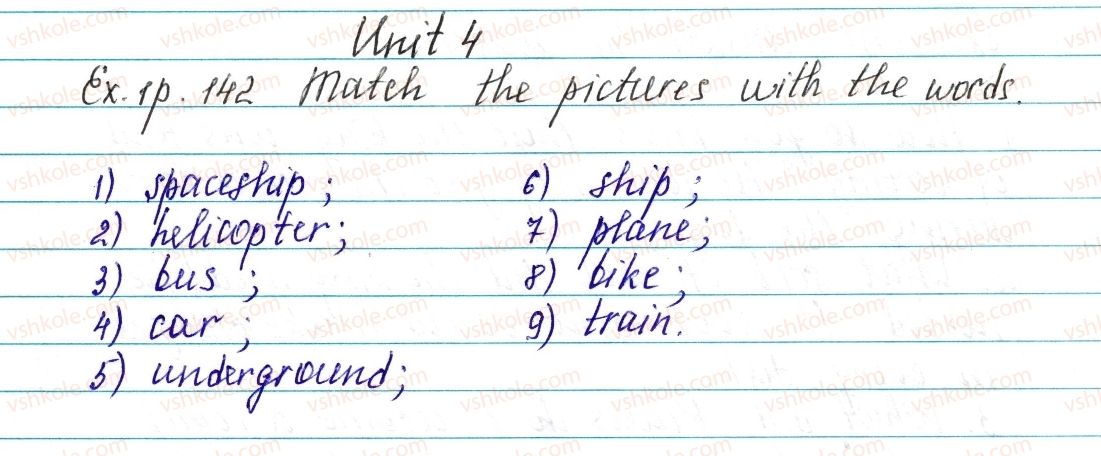 Unit 4
Ex. 1p. 142 Match the pictures with the words.
1) spaceship;
2) helicopter;
3) bus;
4) car;
5) underground;
6) ship;
7) plane;
8) bike;
9) train.